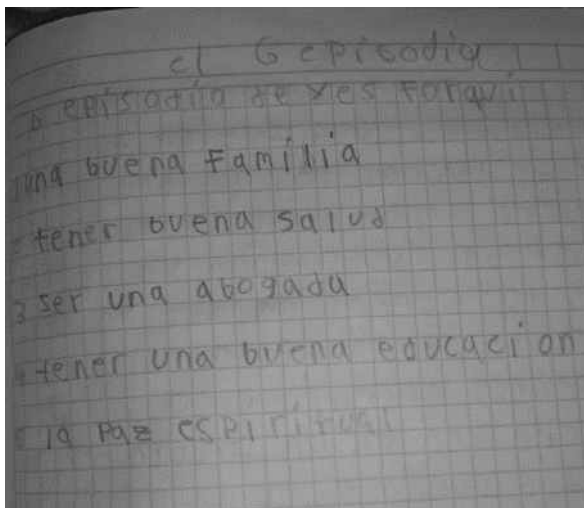 el 6 episodia
episodia de yes
una buena familia
tener buena salud
3 ser una abogada
tener una buena educacion
la paz espiritual